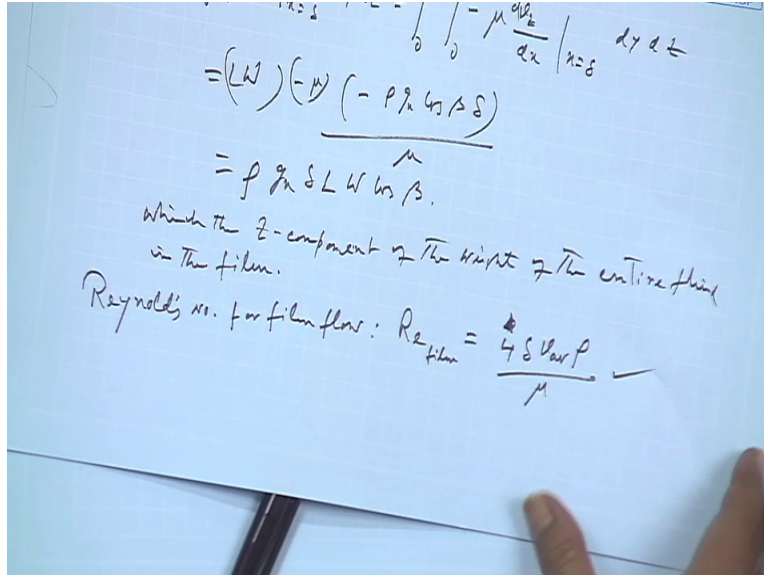 x=δ = ∫₀ ∫₀ - μ dv_z/dx |x=δ dy dz
= (LW) (-μ) (- ρ g_x cos β δ)/μ
= ρ g_x δ L W cos β.
which the z-component of the weight of the entire fluid
in the film.
Reynold's no. for film flow: Re_film = 4 δ v_av ρ / μ